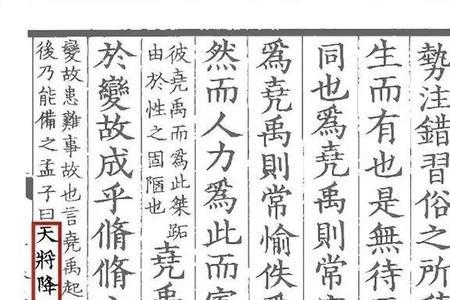 勢注錯習俗之所
生而有也是無待
同也爲堯禹則常
爲堯禹則常愉佚
然而人力爲此而寡
彼堯禹而爲此桀跖
由於性之固陋也
堯
於變故成乎脩脩
變故患難事故也言堯禹起
後乃能備之孟子曰天將降